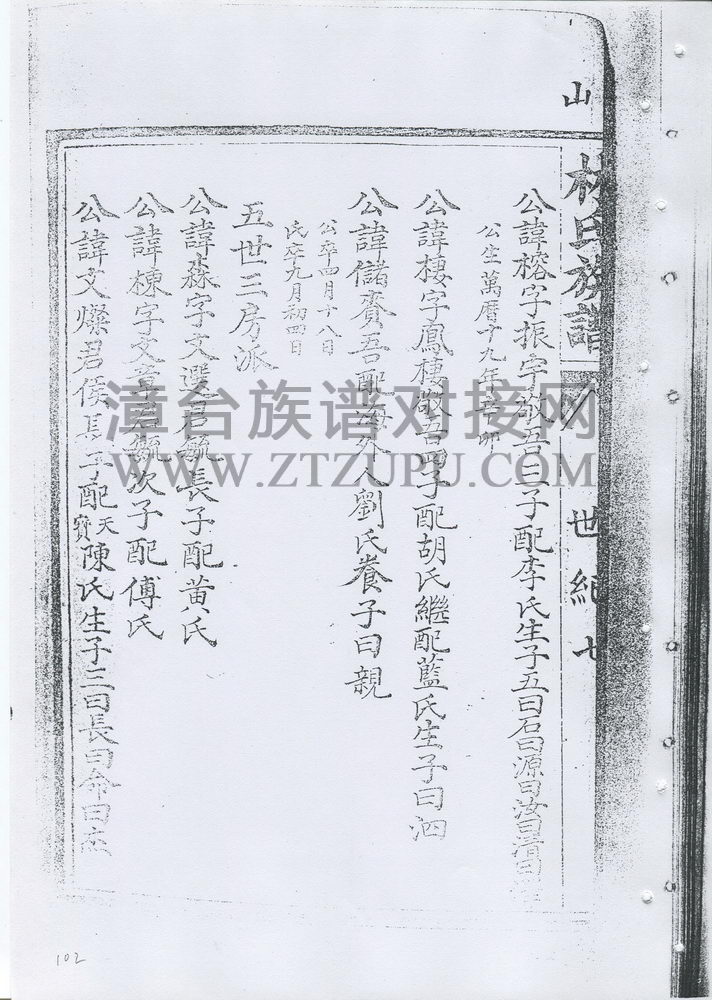 山
林氏族譜
世紀七
公諱榕字振宇敬吾子配李氏生子五曰石曰源曰汝曰清曰
公生萬曆十九年辛卯
公諱棲字鳳棲敬吾四子配胡氏繼配藍氏生子曰泗
公諱儲賚吾配海外人劉氏養子曰親
公卒四月十八日
氏卒九月初四日
五世三房派
公諱森字文選君毓長子配黃氏
公諱棟字文君毓次子配傅氏
公諱文燦君侯長子配天寶陳氏生子三曰長曰命曰
漳台族谱对接网
WWW.ZTZUPU.COM
102